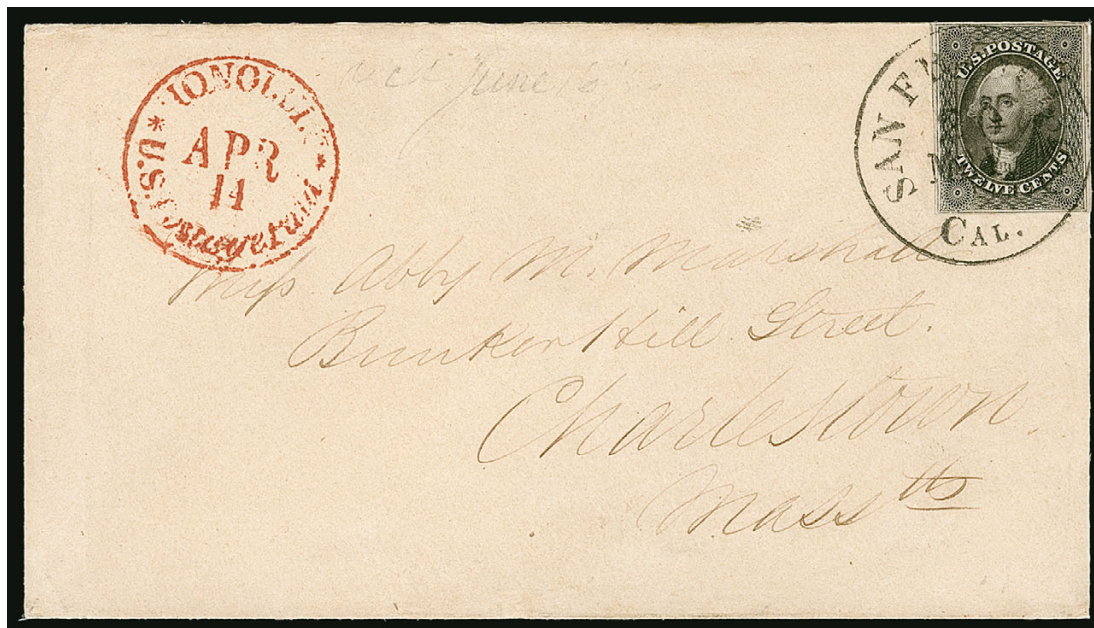 HONOLULU
* U.S. Postage Paid *
APR
11
Rec'd June 16
SAN FR
M
CAL.
U.S. POSTAGE
TWELVE CENTS
Miss Abby M. Marshall
Bunker Hill Street.
Charlestown.
Mass tts